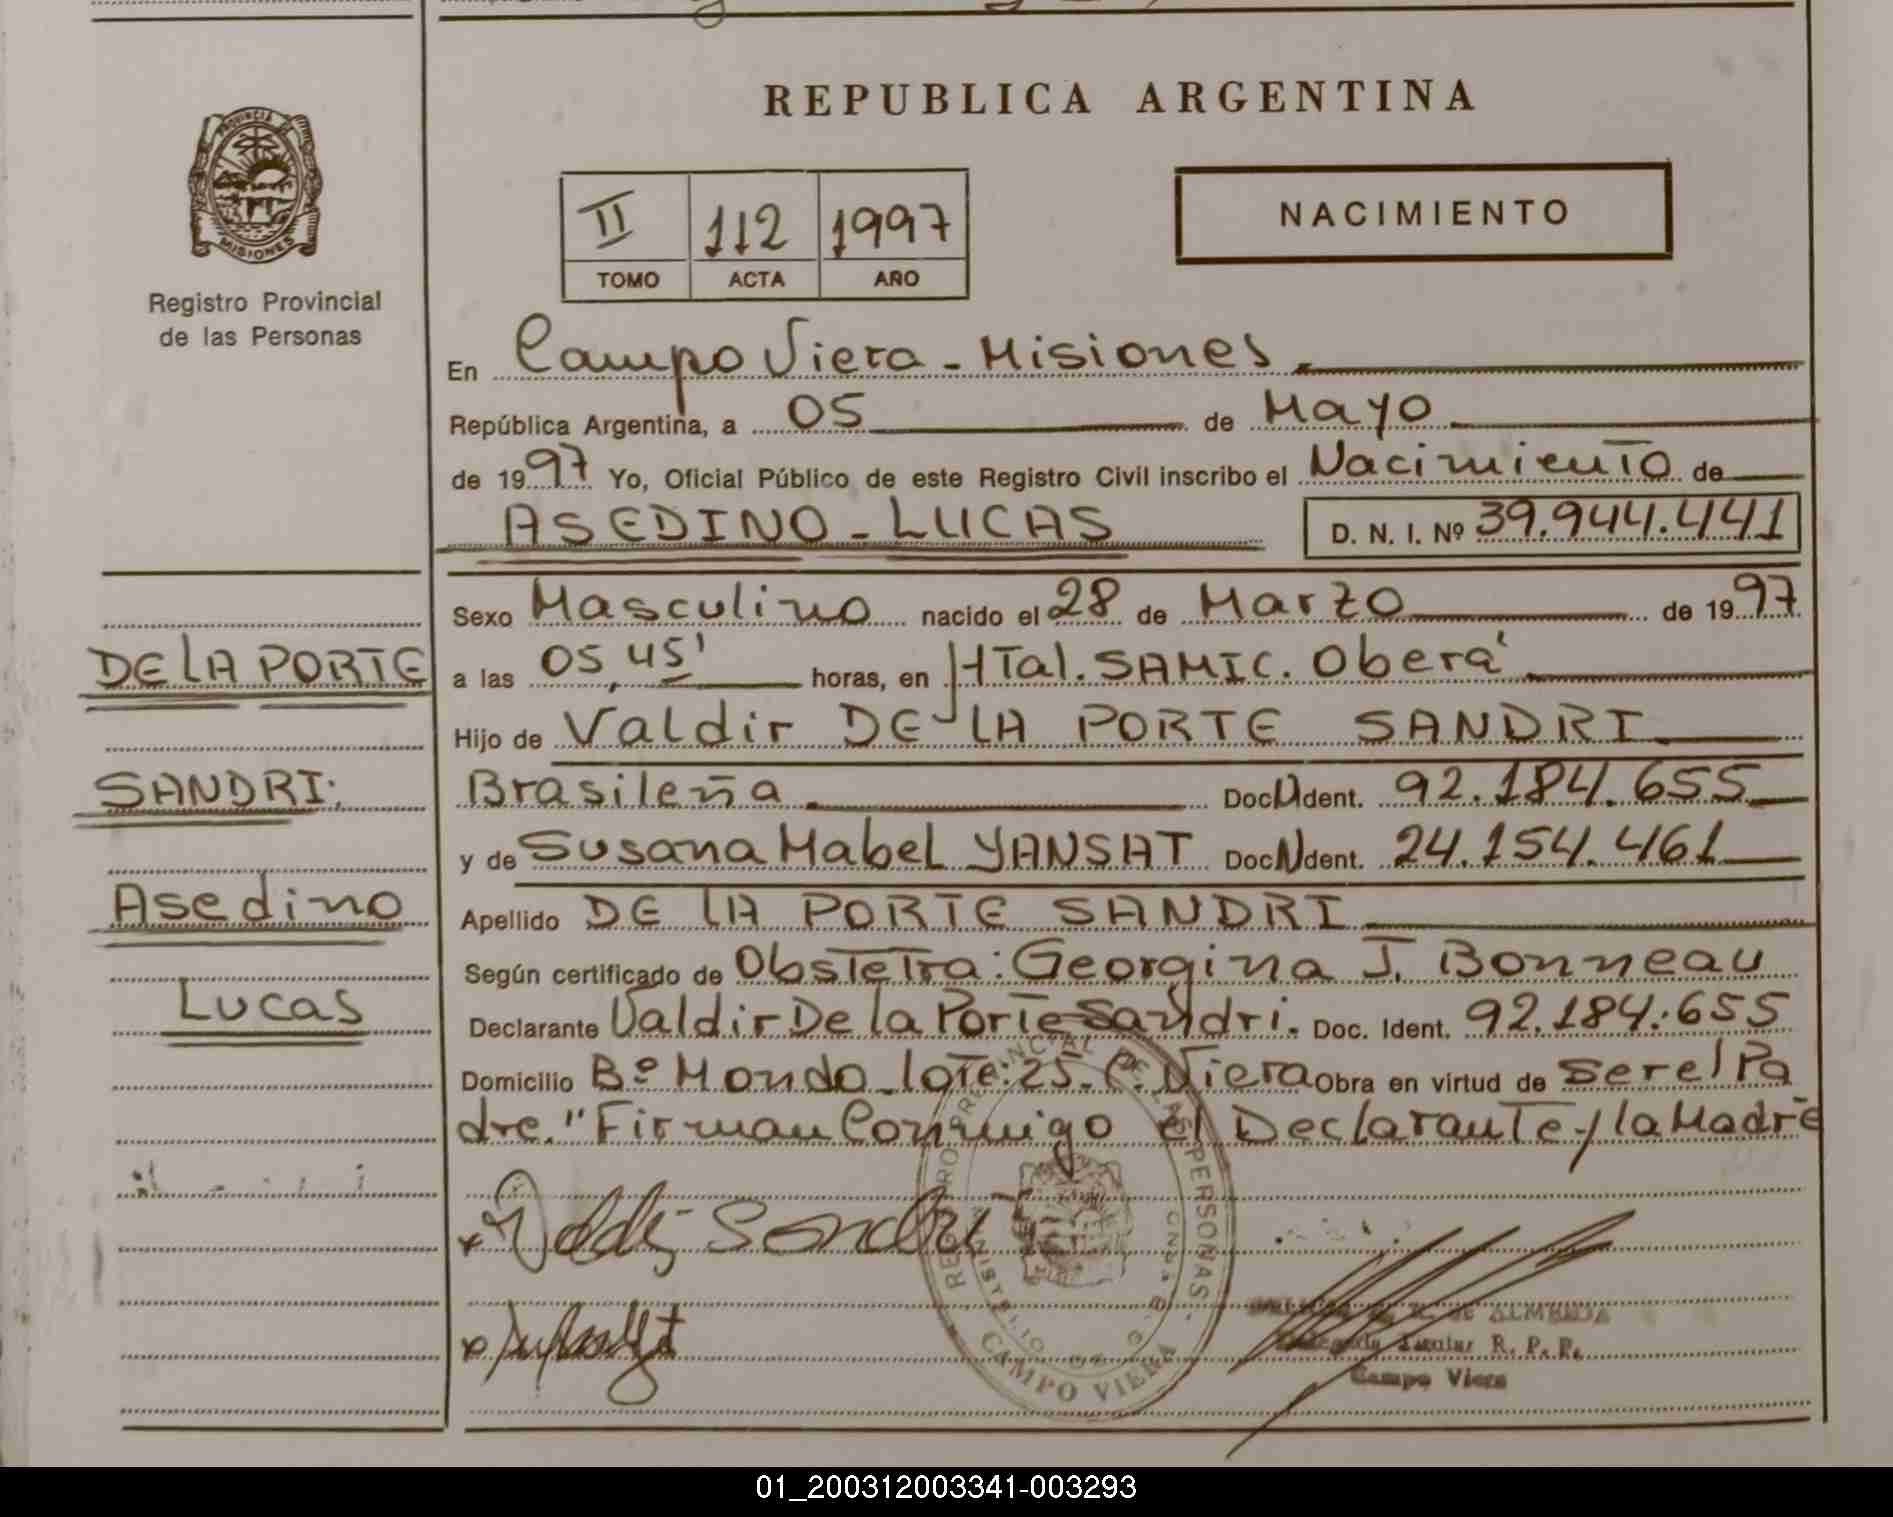 REPUBLICA ARGENTINA
PROVINCIA DE
MISIONES
Registro Provincial
de las Personas
II 112 1997
TOMO ACTA AÑO
NACIMIENTO
En Campo Viera - Misiones.
República Argentina, a 05 de Mayo
de 1997 Yo, Oficial Público de este Registro Civil inscribo el Nacimiento de
ASEDINO - LUCAS D. N. I. Nº 39.944.441
Sexo Masculino nacido el 28 de Marzo de 1997
DE LA PORTE
a las 05,45' horas, en HTal. SAMIC. Oberá
Hijo de Valdir DE LA PORTE SANDRI
SANDRI.
Brasileña Doc. Ident. 92.184.655
y de Susana Mabel YANSAT Doc. Ident. 24.154.461
Asedino
Apellido DE LA PORTE SANDRI
Según certificado de Obstetra: Georgina J. Bonneau
Lucas
Declarante Valdir De la Porte Sandri. Doc. Ident. 92.184.655
Domicilio Bº Mondo. lote: 25. C. Viera Obra en virtud de ser el Pa
dre." Firman Conmigo el Declarante y la Madre
x Sandri
REGISTRO PROVINCIAL DE LAS PERSONAS
CAMPO VIERA
de ALMEIDA
Delegada Titular R. P. P.
Campo Viera
01_200312003341-003293